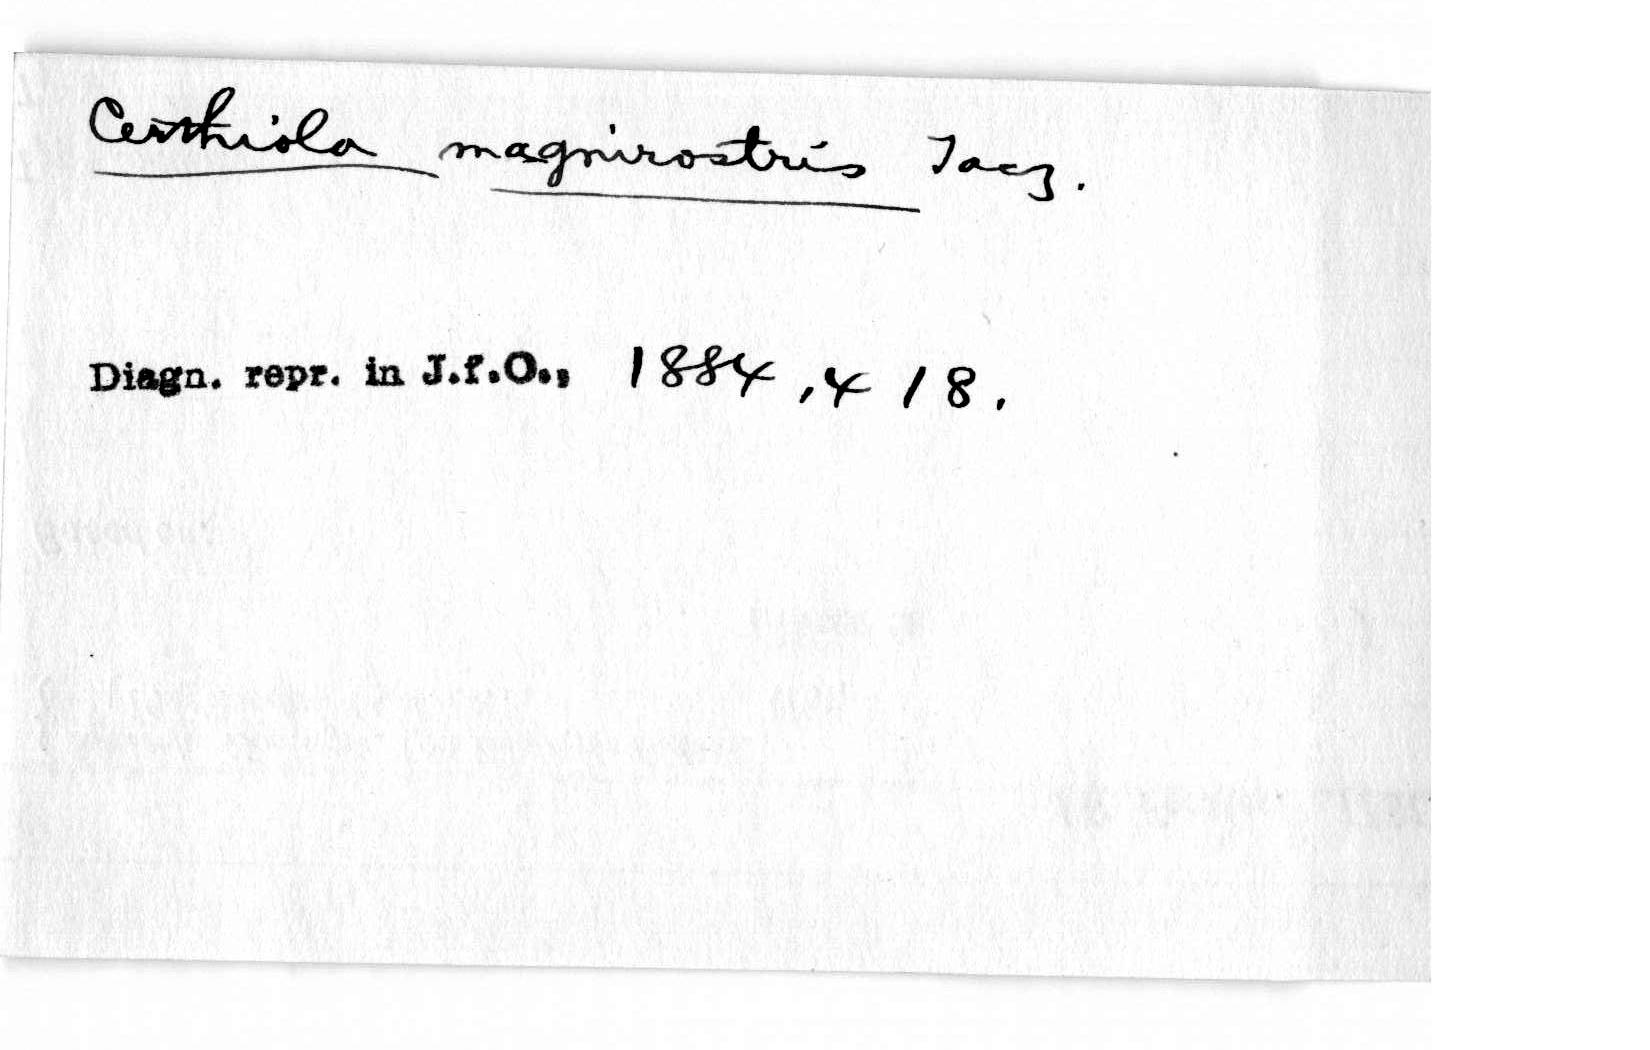 Certhiola magnirostris Tacz.
Diagn. repr. in J.f.O., 1884, 418.